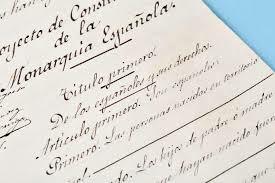 royecto de Consti
de la
Monarquía Española.
Título primero.
De los españoles y sus derechos.
Artículo primero. Son españoles:
Primero. Las personas nacidas en territorio
Los hijos de padre ó madre
hayan nacido fuera